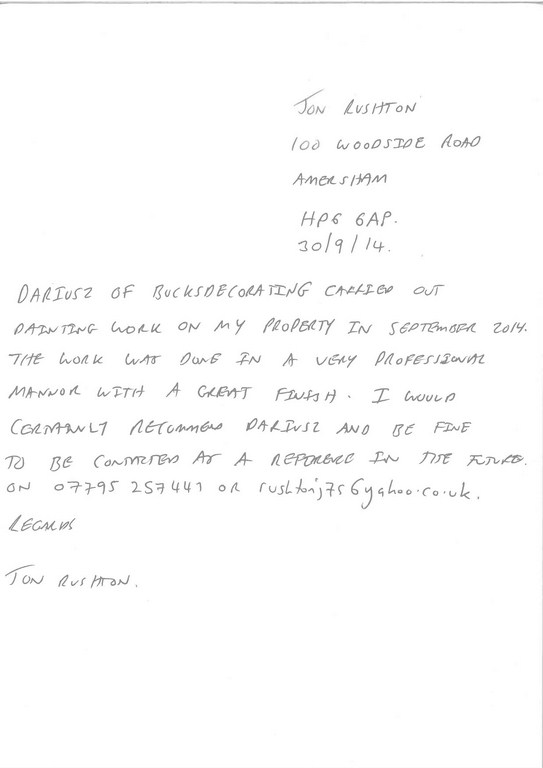 JON RUSHTON
100 WOODSIDE ROAD
AMERSHAM
HP6 6AP.
30/9/14.
DARIUSZ OF BUCKSDECORATING CARRIED OUT
PAINTING WORK ON MY PROPERTY IN SEPTEMBER 2014.
THE WORK WAS DONE IN A VERY PROFESSIONAL
MANNOR WITH A GREAT FINISH. I WOULD
CERTAINLY RECOMMEND DARIUSZ AND BE FINE
TO BE CONTACTED AS A REFERENCE IN THE FUTURE.
ON 07795 257441 OR
REGARDS
JON RUSHTON.